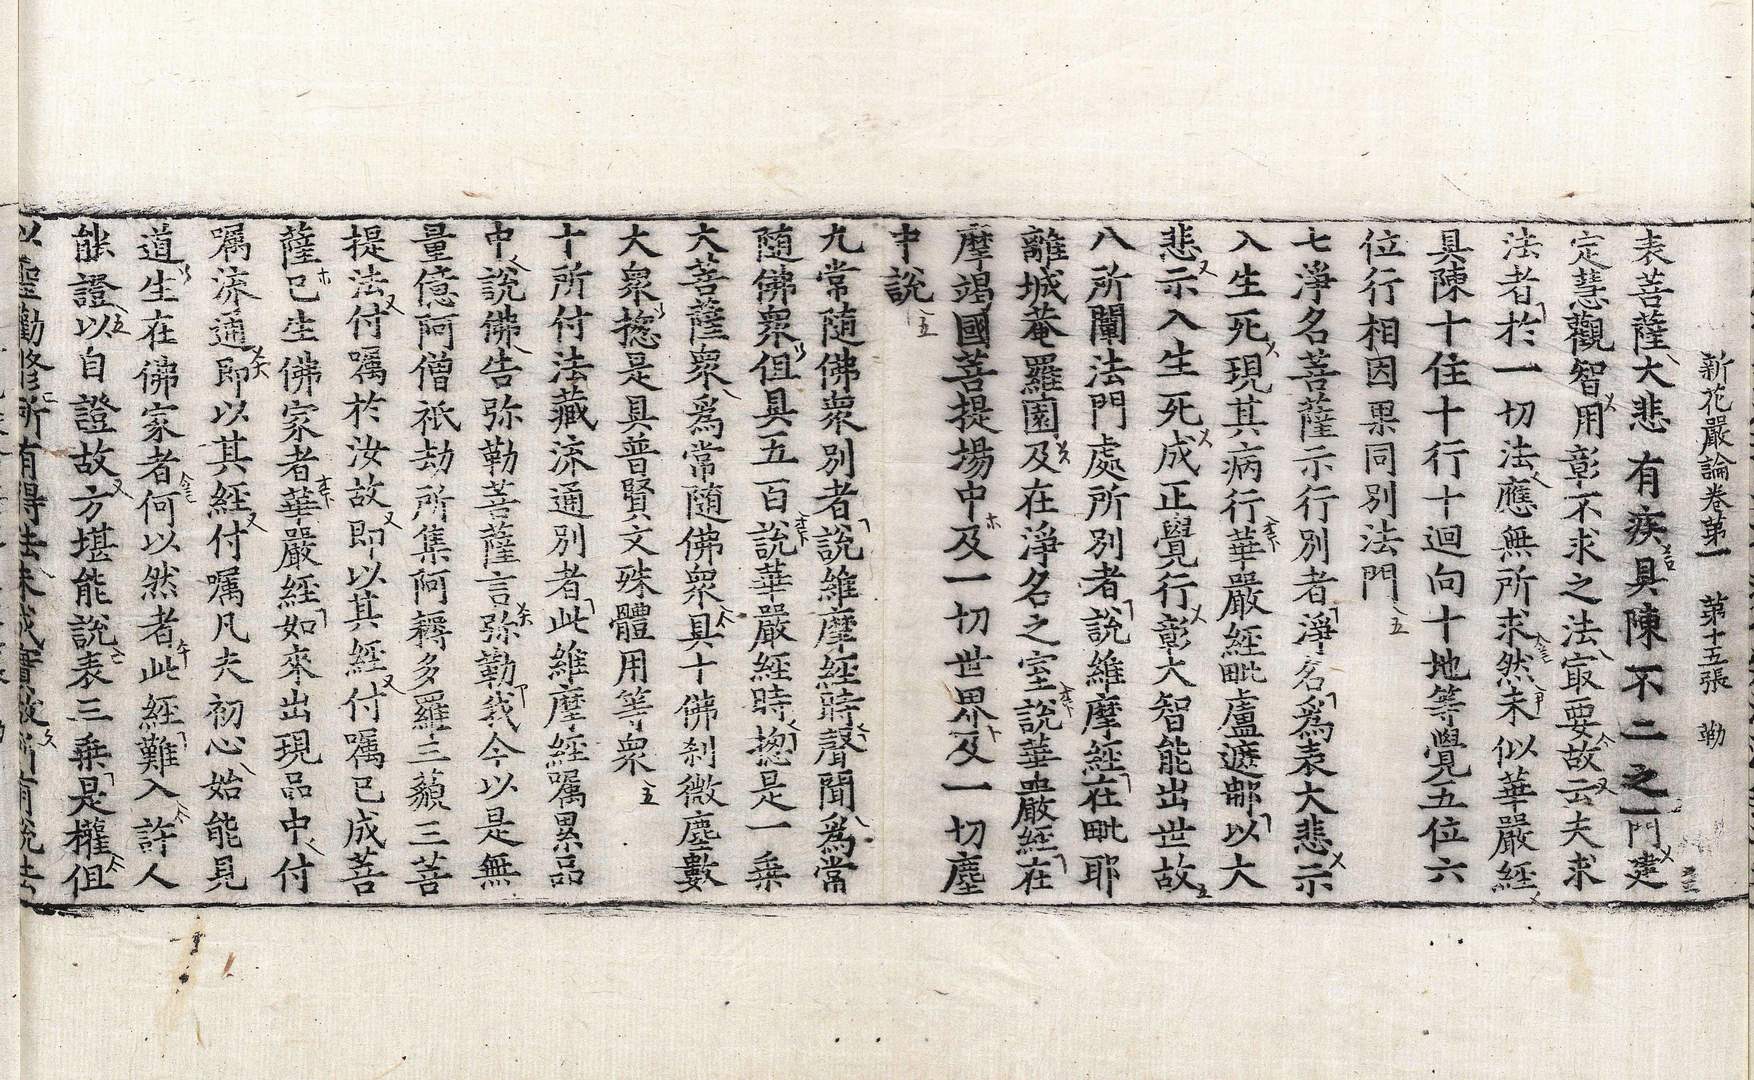 新花嚴論卷第一 第十五張 勒
表菩薩大悲有疾具陳不二之門建
定慧觀智用彰不求之法㝡要故云夫求
法者於一切法應無所求然未似華嚴經
具陳十住十行十迴向十地等覺五位六
位行相因果同別法門
七淨名菩薩示行別者淨名爲表大悲示
入生死現其病行華嚴經毗盧遮那以大
悲示入生死成正覺行彰大智能出世故
八所闡法門處所別者說維摩經在毗耶
離城菴羅園及在淨名之室說華嚴經在
摩竭國菩提場中及一切世界及一切塵
中說
九常隨佛衆別者說維摩經時聲聞爲常
隨佛衆但具五百說華嚴經時揔是一乘
大菩薩衆爲常隨佛衆具十佛刹微塵數
大衆揔是具普賢文殊體用等衆
十所付法藏流通別者此維摩經嘱累品
中說佛告弥勒菩薩言弥勒我今以是無
量億阿僧祇劫所集阿耨多羅三藐三菩
提法付嘱於汝故即以其經付嘱已成菩
薩已生佛家者華嚴經如來出現品中付
嘱流通即以其經付嘱凡夫初心始能見
道生在佛家者何以然者此經難入許人
能證以自證故方堪能說表三乘是權但